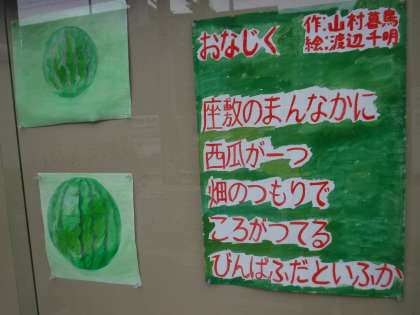 おなじく
作:山村暮鳥
絵:渡辺千明
座敷のまんなかに
西瓜が一つ
畑のつもりで
ころがつてる
びんぼふだといふか